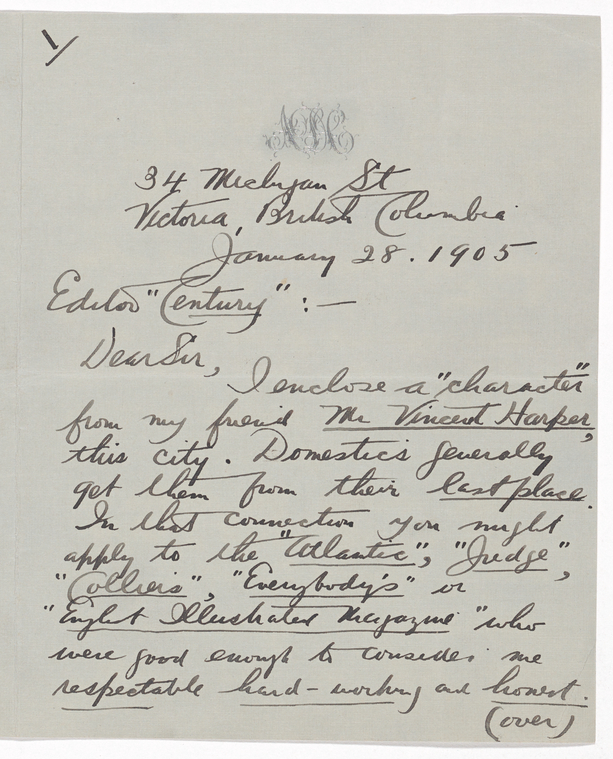 1/
34 Michigan St
Victoria, British Columbia
January 28. 1905
Editor "Century" : —
Dear Sir,
I enclose a "character"
from my friend Mr Vincent Harper,
this city. Domestics generally
get them from their last place.
In that connection you might
apply to the "Atlantic", "Judge",
"Colliers", "Everybody's" or
"English Illustrated Magazine" who
were good enough to consider me
respectable hard-working and honest.
(over)